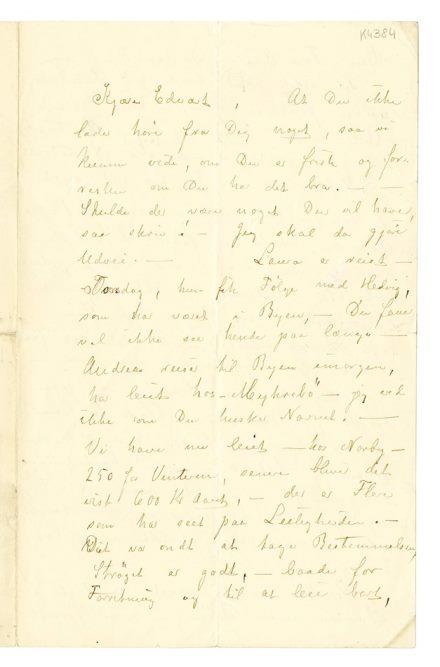 K4384
Kjære Edvart, At Du ikke
lader høre fra Dig noget, saa vi
kunne vide, om Du er frisk og for-
resten om Du har det bra. — —
Skulde der være noget Du vil have,
saa skriv! — Jeg skal da gjøre
Udvei. — Laura er reist —
Torsdag, hun fik Følge med Hedvig,
som har været i Byen, — Du faar
vel ikke see hende paa længe —
Andreas reise til Byen imorgen,
har leiet hos — — jeg ved
ikke om Du husker Navnet. —
Vi have nu leiet — hos Norby —
250 for Vinteren, senere bliver det
vist 600 Kr aaret, — der er Flere
som har seet paa Leiligheden. —
Det var ondt at tage Bestemmelsen,
Strøget er godt, — baade for
Forretning og til at leie bort,